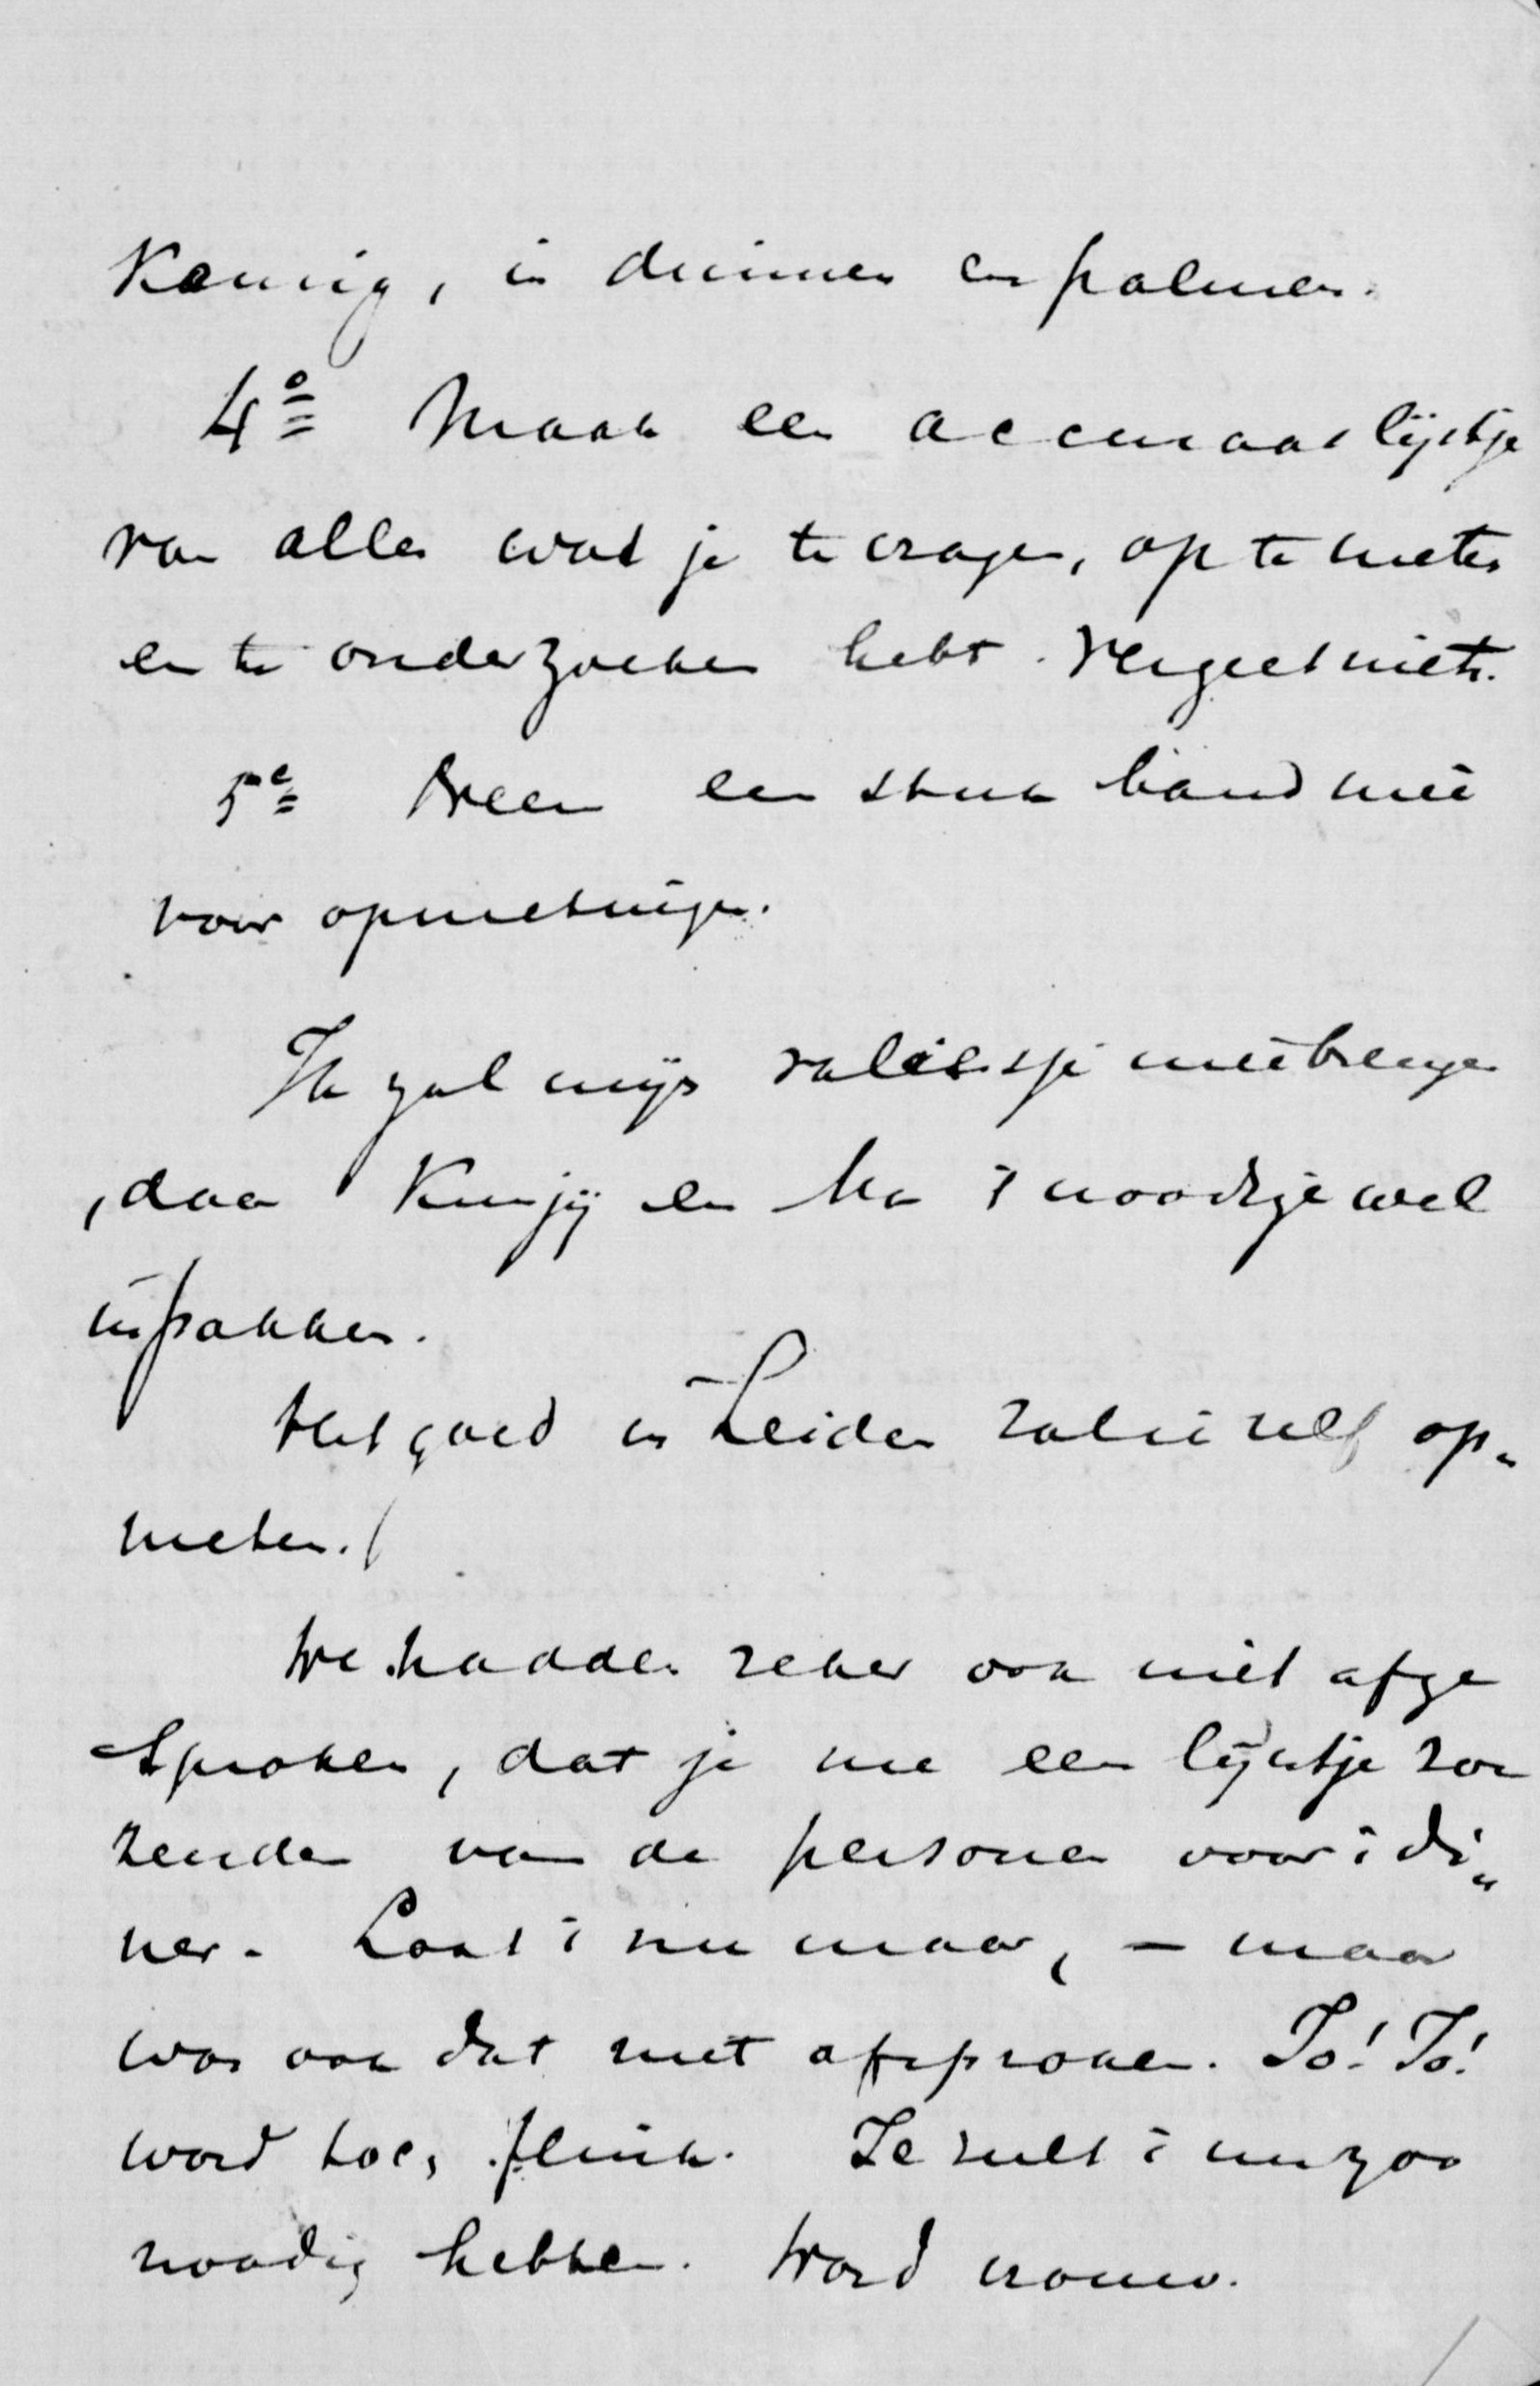 Koning, in duimen en palmen.
4º Maak een accuraat lijstje
van alles wat je te vragen, op te meten
en te onderzoeken hebt. Vergeet niets.
5e Neem een stuk band meê
voor opmetingen.
Ik zal mijn valiesje meêbrengen
, daar kun jij en Ma 't noodige wel
inpakken.
Het goed in Leiden zal ik zelf op„
meten.
We hadden zeker ook niet afge
sproken, dat je me een lijstje zou
zenden van de personen voor 't di„
ner. Laat 't nu maar, – maar
was ook dat niet afsproken. To! To!
word toch flink. Je zult 't nu zoo
noodig hebben. Word vrouw.